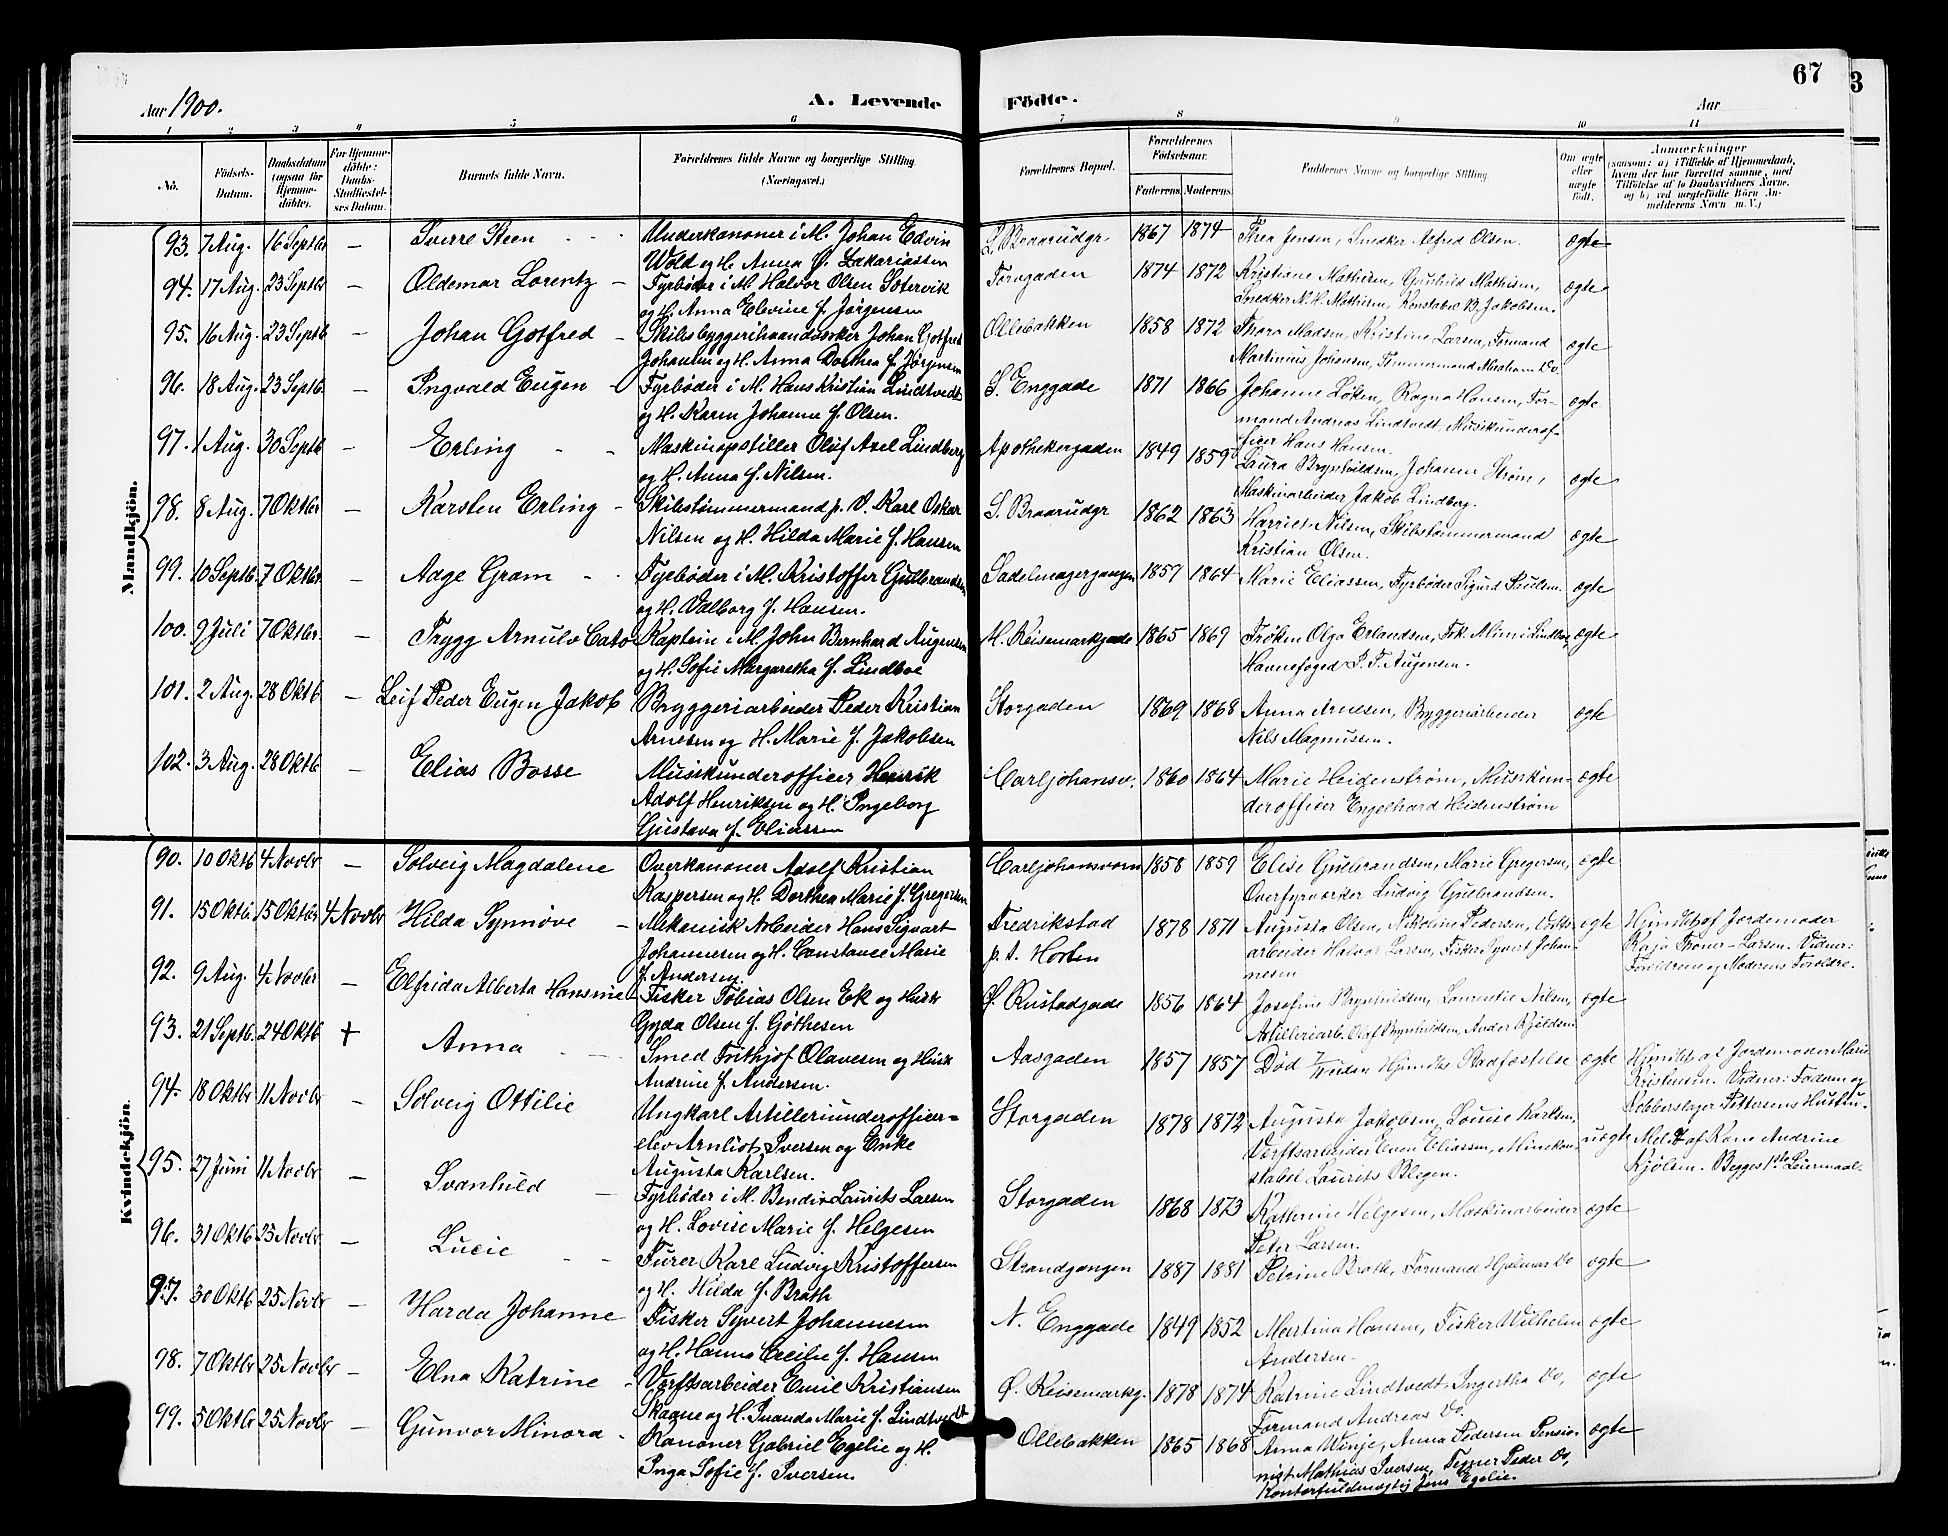 Aar 1900.
A. Levende
Födte.
Aar
67
3
1 2 3 4 5 6 7 8 9 10 11
No.
Födsels-
Datum.
Daabsdatum
(ogsaa for
Hjemme-
döbte).
For Hjemme-
döbte:
Daabs-
Stadfæstel-
ses Datum.
Barnets fulde Navn.
Forældrenes fulde Navne og borgerlige Stilling.
(Næringsvei.)
Forældrenes Bopæl.
Forældrenes
Födselsaar.
Faderens.
Moderens.
Faddernes Navne og borgerlige Stilling.
Om ægte
eller
uægte
født.
Anmærkninger
(saasom: a) i Tilfælde af Hjemmedaab,
hvem der har forrettet samme, med
Tilföielse af to Daabsvidners Navne,
og b) ved uægtefödte Börn An-
melderens Navn m. V.)
Mandkjön.
93. 7 Aug. 16 Septbr — Sverre Steen
Underkanoner i M. Johan Edvin
Wold og H. Anna f. Zakariassen
S. Braarudgr 1867 1874
Thea Jensen, Snedker Alfred Olsen. ægte
94. 17 Aug. 23 Septbr — Oldemar Lorentz
Fyrbøder i M. Halvor Olsen Sætervik
og H. Anna Elevine f. Jørgensen
Torvgaden 1874 1872
Kristiane Mathisen, Gunhild Mathisen,
Snedker N. H. Mathisen, Konstabel B. Jakobsen. ægte
95. 16 Aug. 23 Septb — Johan Gotfred
Skibsbyggerihaandværker Johan Gotfred
Johansen og H. Anna Dorthea f. Jørgensen
Ollebakken 1858 1872
Thora Madsen, Kristine Larsen, Formand
Martinius Johansen, Tømmermand Abraham Do. ægte
96. 18 Aug. 23 Septb. — Ingvald Eugen
Fyrbøder i M. Hans Kristian Lindtvedt
og H. Karen Johanne f. Olsen.
S. Enggade 1871 1866
Johanne Løken, Ragna Hansen, For-
mand Andreas Lindtvedt, Musikunderof-
ficer Hans Hansen. ægte
97. 1 Aug. 30 Septb — Erling
Maskinopstiller Oluf Axel Lindberg
og H. Anna f. Nilsen.
Apothekergaden 1849 1859
Laura Brynhildsen, Johanne Strøm,
Maskinarbeider Jakob Lindberg. ægte
98. 8 Aug. 7 Oktbr — Karsten Erling
Skibstømmermand p. V. Karl Oskar
Nilsen og H. Hilda Marie f. Hansen
S. Braarudgr 1862 1863
Harriet Nilsen, Skibstømmermand
Kristian Olsen. ægte
99. 10 Septb. 7 Oktbr. — Aage Gram
Fyrbøder i M. Kristoffer Gulbrandsen
og H. Valborg f. Hansen.
Sadelmagergangen 1857 1864
Marie Eliassen, Fyrbøder Sigurd Paulsen. ægte
100. 9 Juli 7 Oktbr. — Trygg Arnulv Cato
Kaptein i M. John Bernhard Augensen
og H. Sofie Margaretha f. Lindboe
H. Keisemarkgade 1865 1869
Frøken Olga Erlandsen, Frk. Mimi Lindboe,
Havnefoged P. T. Augensen. ægte
101. 2 Aug. 28 Oktb — Leif Peder Eugen Jakob
Bryggeriarbeider Peder Kristian
Arnesen og H. Marie f. Jakobsen
Storgaden 1869 1868
Anna Arnesen, Bryggeriarbeider
Nils Magnussen. ægte
102. 3 Aug. 28 Oktb — Elias Bosse
Musikunderofficer Henrik
Adolf Henriksen og H. Ingeborg
Gustava f. Eliassen
Carljohansv. 1860 1864
Marie Heidenstrøm, Musikun-
derofficer Engelhard Heidenstrøm ægte
Kvindekjön.
90. 10 Oktb 4 Novbr — Solveig Magdalene
Overkanoner Adolf Kristian
Kaspersen og H. Dorthea Marie f. Gregersen
Carljohansvorn 1858 1859
Elise Gulbrandsen, Marie Gregersen,
Overfyrværker Ludvig Gulbrandsen. ægte
91. 15 Oktbr 15 Oktbr 4 Novbr Hilda Synnøve
Mekanisk Arbeider Hans Sigvart
Johannesen og H. Constance Marie
f. Andersen.
Fredrikstad
p. t. Horten 1878 1871
Augusta Olsen, Nikoline Pedersen, Verfts-
arbeider Halvor Larsen, Fisker Syvert Johan-
nesen ægte
Hjmdbt af Jordemoder
Kaja Troner-Larsen. Vidner:
Forældrene og Moderens Forældre.
92. 9 Aug. 4 Novbr — Elfrida Alberta Hansine
Fisker Tobias Olsen Ek og Hustr
Gyda Olsen f. Gøthesen
Ø. Rustadgade 1856 1864
Josefine Brynhildsen, Laurentie Nilsen,
Artilleriarb. Olaf Brynhildsen, Ander Kjeldsen ægte
93. 21 Septb. 24 Oktb + Anna
Smed Frithjof Olavesen og Hustr
Andrine f. Andersen.
Aasgaden 1857 1857
Død uden Hjmdbs Stadfæstelse ægte
Hjmdbt af Jordemoder Marie
Kristensen. Vidner: Faderen og
Kobberslager Pettersens Hustru.
94. 18 Oktbr 11 Novbr — Solveig Ottilie
Ungkarl Artilleriunderofficer=
elev Arnliot Iversen og Enke
Augusta Karlsen.
Storgaden 1878 1872
Augusta Jakobsen, Louise Karlsen,
Verftsarbeider Even Eliassen, Minekon-
stabel Laurits Blegen. uægte
Meldt af Kone Andrine
Kjølsen. Begges 1ste Leiermaal.
95. 27 Juni 11 Novbr — Svanhild
Fyrbøder i M. Bendix Laurits Larsen
og H. Lovise Marie f. Helgesen
Storgaden 1868 1873
Kathrine Helgesen, Maskinarbeider
Peter Larsen. ægte
96. 31 Oktb 25 Novbr — Lucie
Furer Karl Ludvig Kristoffersen
og H. Hilda f. Bråth
Strandgangen 1887 1881
Petrine Bråth, Formand Hjalmar Do ægte
97. 30 Oktb 25 Novbr — Harda Johanne
Fisker Syvert Johannesen
og H. Hanna Cecilie f. Hansen
N. Enggade 1849 1852
Martina Hansen, Fisker Wilhelm
Andersen. ægte
98. 7 Oktbr 25 Novbr — Elna Katrine
Verftsarbeider Emil Kristiansen
Skagne og H. Ivanda Marie f. Lindtvedt
Ø. Keisemarkg. 1878 1874
Katrine Lindtvedt, Ingertha Do,
Formand Andreas Do. ægte
99. 5 Oktbr 25 Novbr — Gunvor Minora
Kanoner Gabriel Egelie og H.
Inga Sofie f. Iversen.
Ollebakken 1865 1868
Anna Winje, Anna Pedersen Pensio-
nist Mathias Iversen, Tegner Peder Do,
Kontorfuldmægtig Jens Egelie. ægte